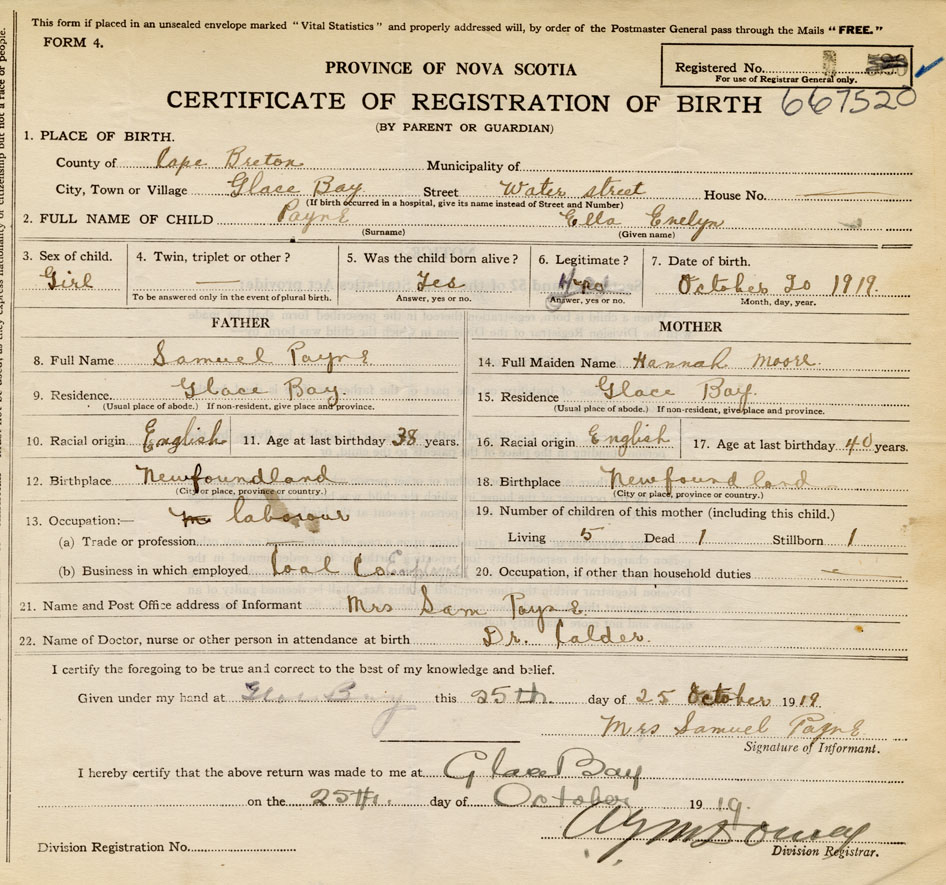 This form if placed in an unsealed envelope marked "Vital Statistics" and properly addressed will, by order of the Postmaster General pass through the Mails "FREE."
FORM 4.
Registered No.
For use of Registrar General only.
PROVINCE OF NOVA SCOTIA
CERTIFICATE OF REGISTRATION OF BIRTH 667520
(BY PARENT OR GUARDIAN)
1. PLACE OF BIRTH.
County of Cape Breton Municipality of
City, Town or Village Glace Bay Street Water street House No.
(If birth occurred in a hospital, give its name instead of Street and Number)
2. FULL NAME OF CHILD Payne Ella Evelyn
(Surname) (Given name)
3. Sex of child. 4. Twin, triplet or other? 5. Was the child born alive? 6. Legitimate? 7. Date of birth.
Girl Yes October 20 1919.
To be answered only in the event of plural birth. Answer, yes or no. Answer, yes or no. Month, day, year.
FATHER MOTHER
8. Full Name Samuel Payne 14. Full Maiden Name Hannah Moore.
9. Residence. Glace Bay. 15. Residence Glace Bay.
(Usual place of abode.) If non-resident, give place and province. (Usual place of abode.) If non-resident, give place and province.
10. Racial origin English 11. Age at last birthday 38 years. 16. Racial origin English 17. Age at last birthday 40 years.
12. Birthplace Newfoundland 18. Birthplace Newfoundland
(City or place, province or country.) (City or place, province or country.)
13. Occupation:— labourer 19. Number of children of this mother (including this child.)
(a) Trade or profession Living 5 Dead 1 Stillborn 1
(b) Business in which employed Coal Co. 20. Occupation, if other than household duties
21. Name and Post Office address of Informant Mrs Sam Payne
22. Name of Doctor, nurse or other person in attendance at birth Dr. Calder.
I certify the foregoing to be true and correct to the best of my knowledge and belief.
Given under my hand at Glace Bay this 25th. day of 25 October 1919.
Mrs Samuel Payne
Signature of Informant.
I hereby certify that the above return was made to me at Glace Bay
on the 25th. day of October 1919.
Division Registration No.
Division Registrar.